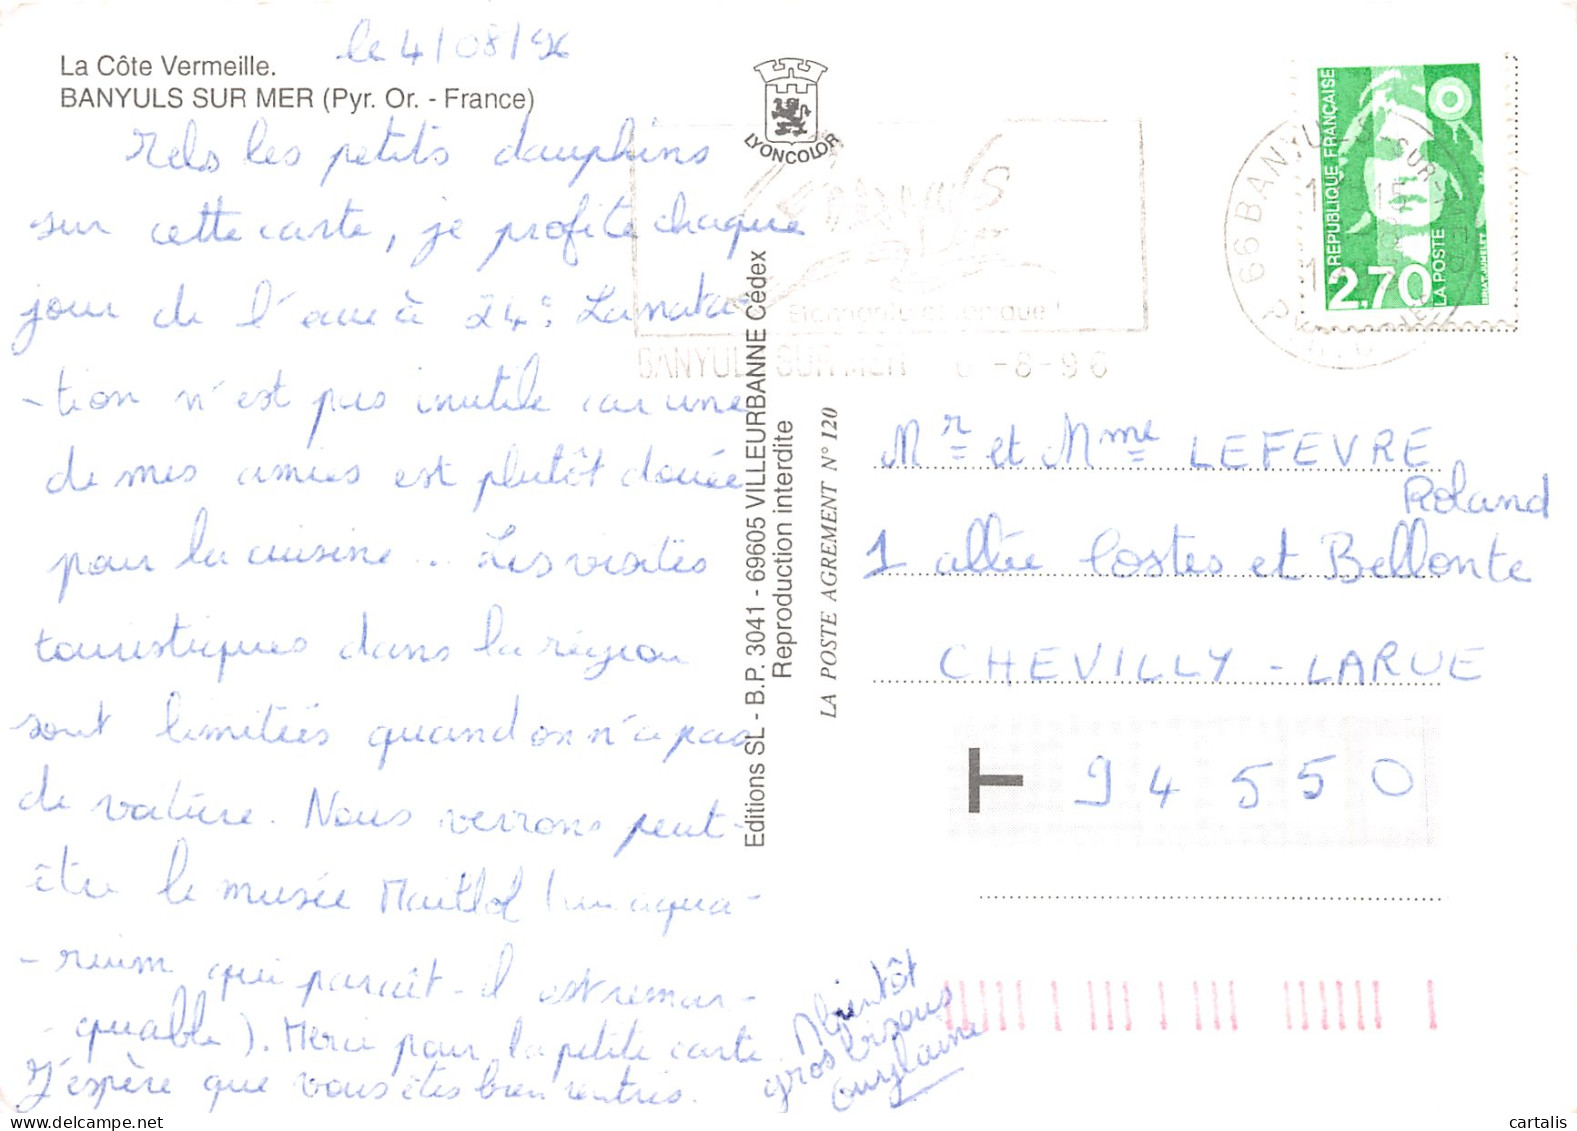 le 4/08/96
La Côte Vermeille.
BANYULS SUR MER (Pyr. Or. - France)
Tels les petits dauphins
sur cette carte, je profite chaque
jour de l'eau à 24°. La nata-
-tion n'est pas inutile car une
de mes amies est plutôt douée
pour la cuisine.. Les visites
touristiques dans la région
sont limitées quand on n'a pas
de voiture. Nous verrons peut-
être le musée Maillol (un aqua-
-rium qui paraît-il est remar-
-quable). Merci pour la petite carte.
J'espère que vous êtes bien rentrés.
A bientôt
gros bisous
LYONCOLOR
Editions SL - B.P. 3041 - 69605 VILLEURBANNE Cédex
Reproduction interdite
LA POSTE AGREMENT N° 120
BANYULS SUR MER -8-96
66 BANYULS-SUR-MER
RÉPUBLIQUE FRANÇAISE
2,70
LA POSTE
Mr et Mme LEFEVRE
Roland
1 allée Costes et Bellonte
CHEVILLY-LARUE
T 94550
cartalis
delcampe.net